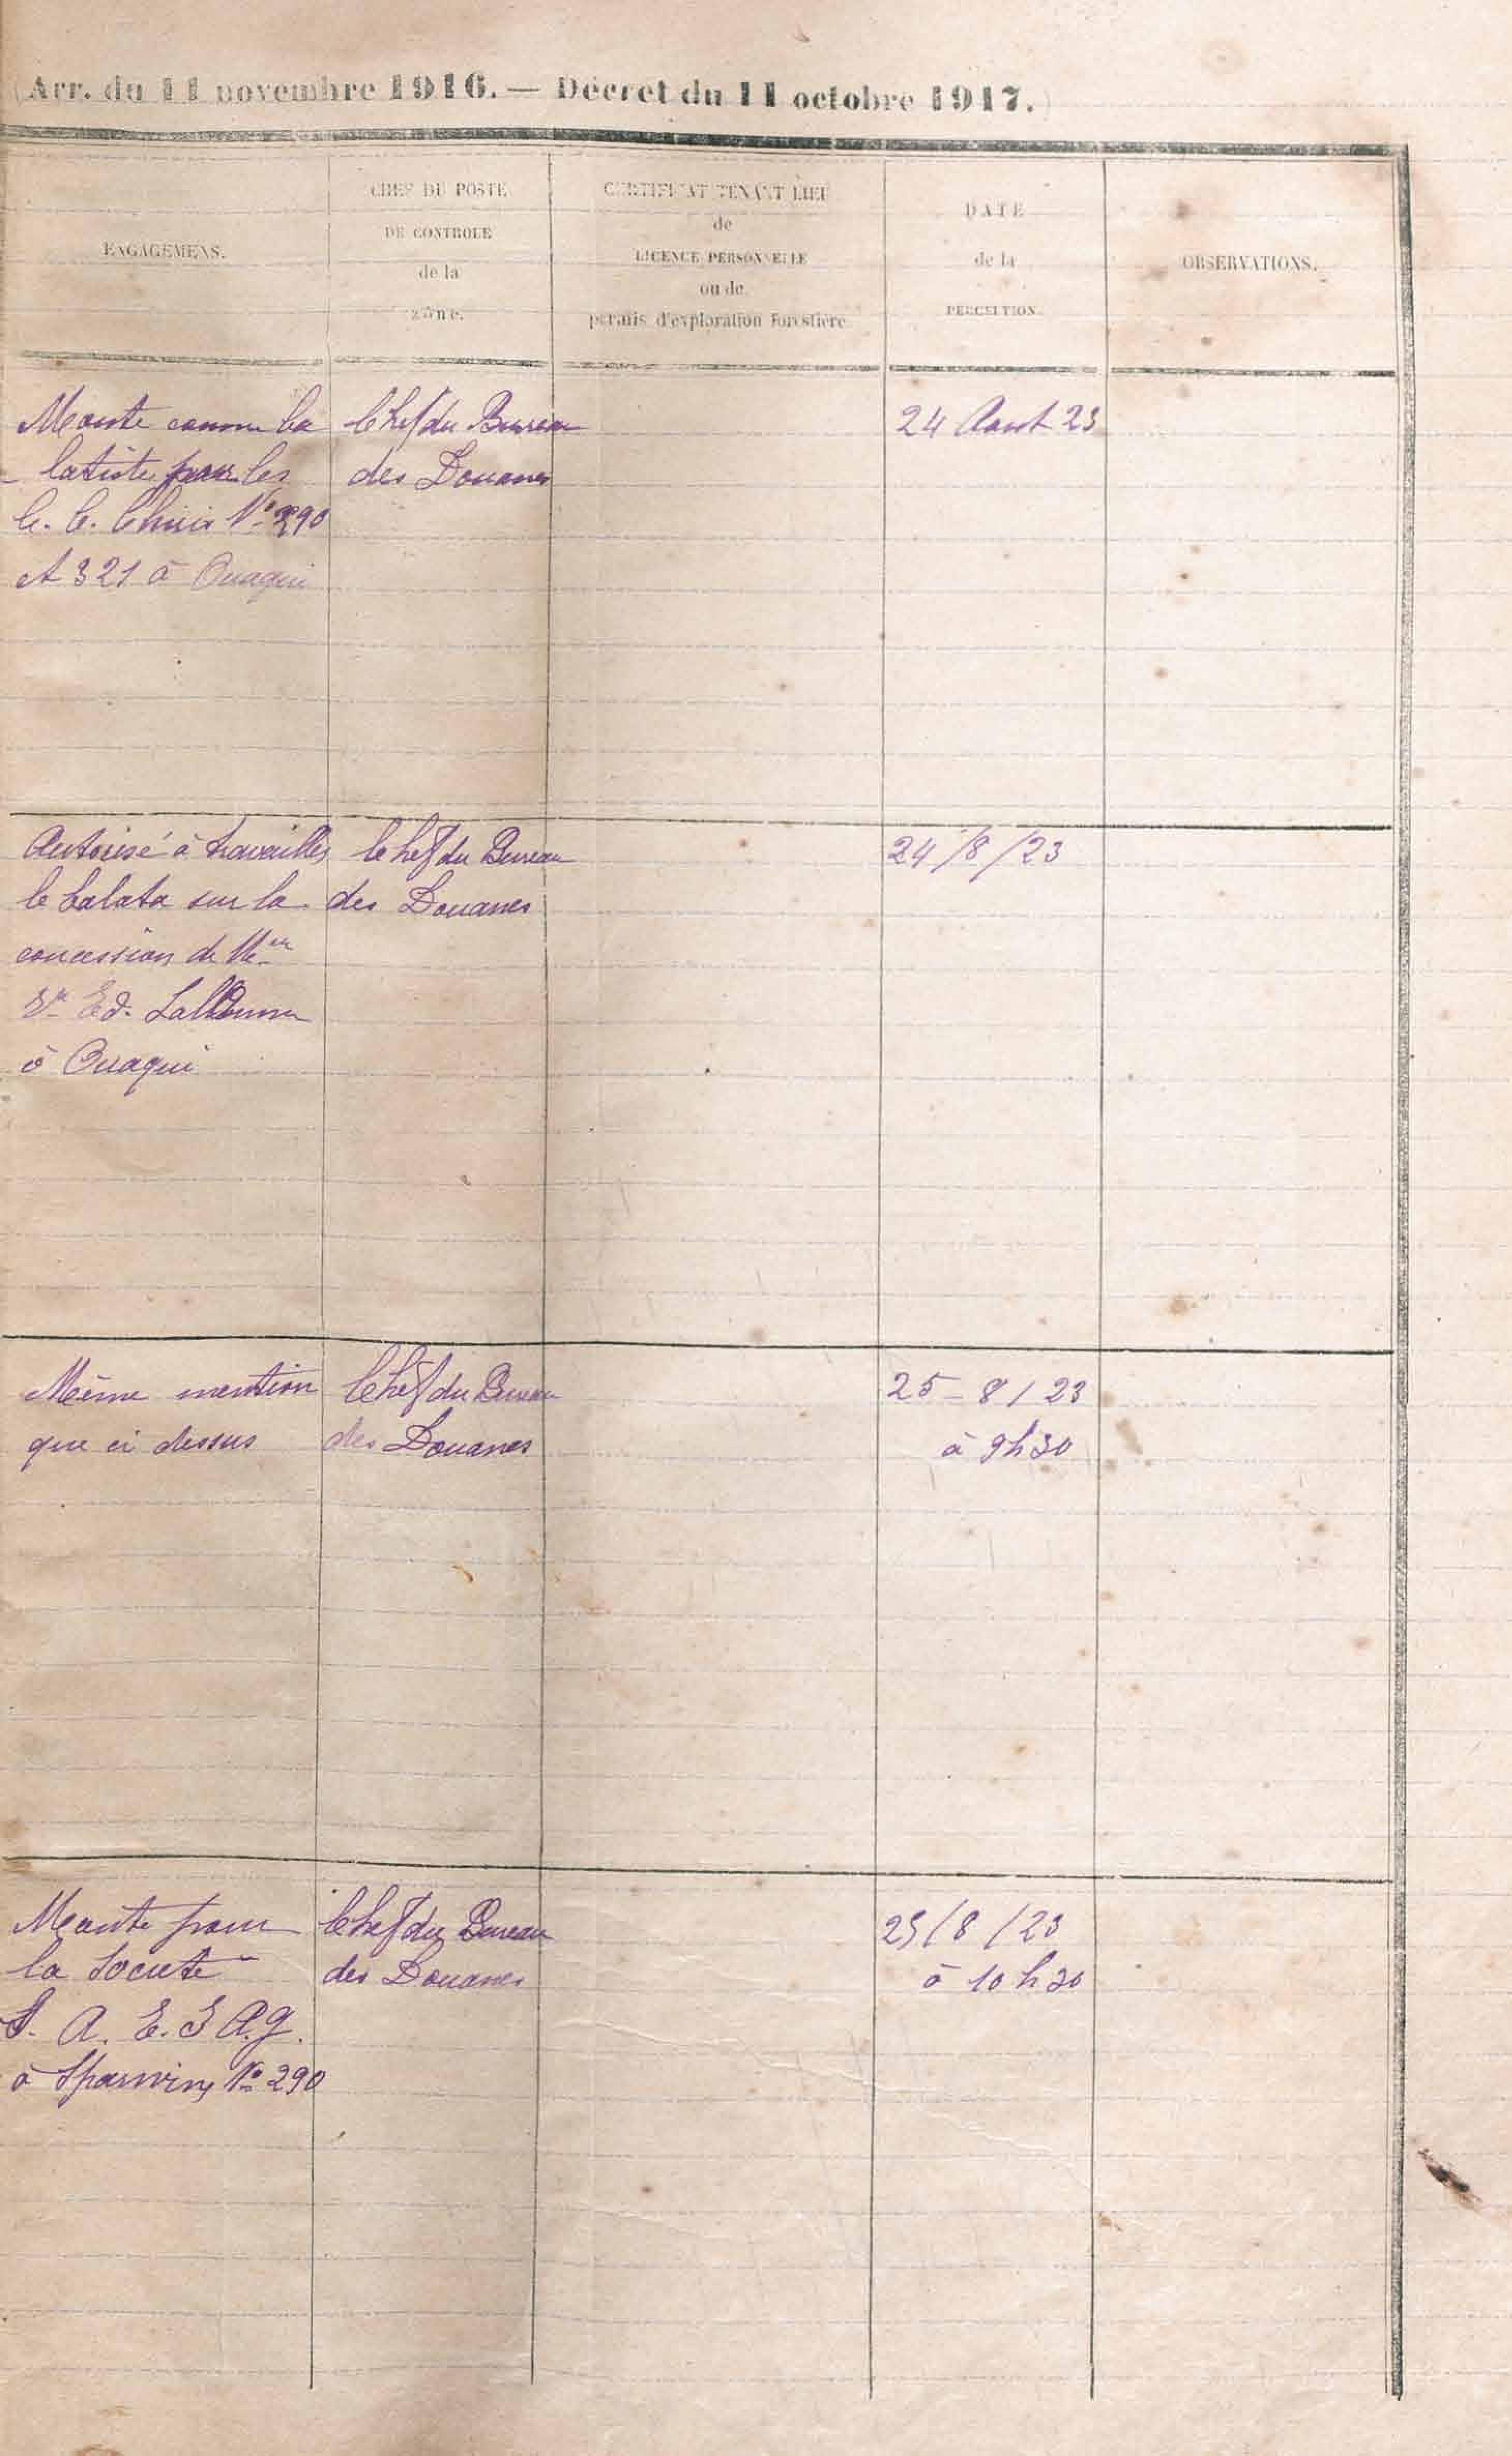 (Arr. du 11 novembre 1916. — Décret du 11 octobre 1917.)
ENGAGEMENS.
CHEF DU POSTE
DE CONTROLE
de la
zône.
CERTIFICAT TENANT LIEU
de
LICENCE PERSONNELLE
ou de
permis d'exploration forestière
DATE
de la
PERCEPTION.
OBSERVATIONS.
Monte comme ba
latiste pour les
C. C. N° 290
et 321 à Ouaqui
Chef du Bureau
des Douanes
24 Aout 23
Autorisé à travailler
le balata sur la
concession de
Ed.
à Ouaqui
Chef du Bureau
des Douanes
24/8/23
Même mention
que ci dessus
Chef du Bureau
des Douanes
25-8/23
à 9h30
Monte pour
la Societé
S. A. E. F A.G.
à Sparwine N° 290
Chef du Bureau
des Douanes
25/8/23
à 10h30